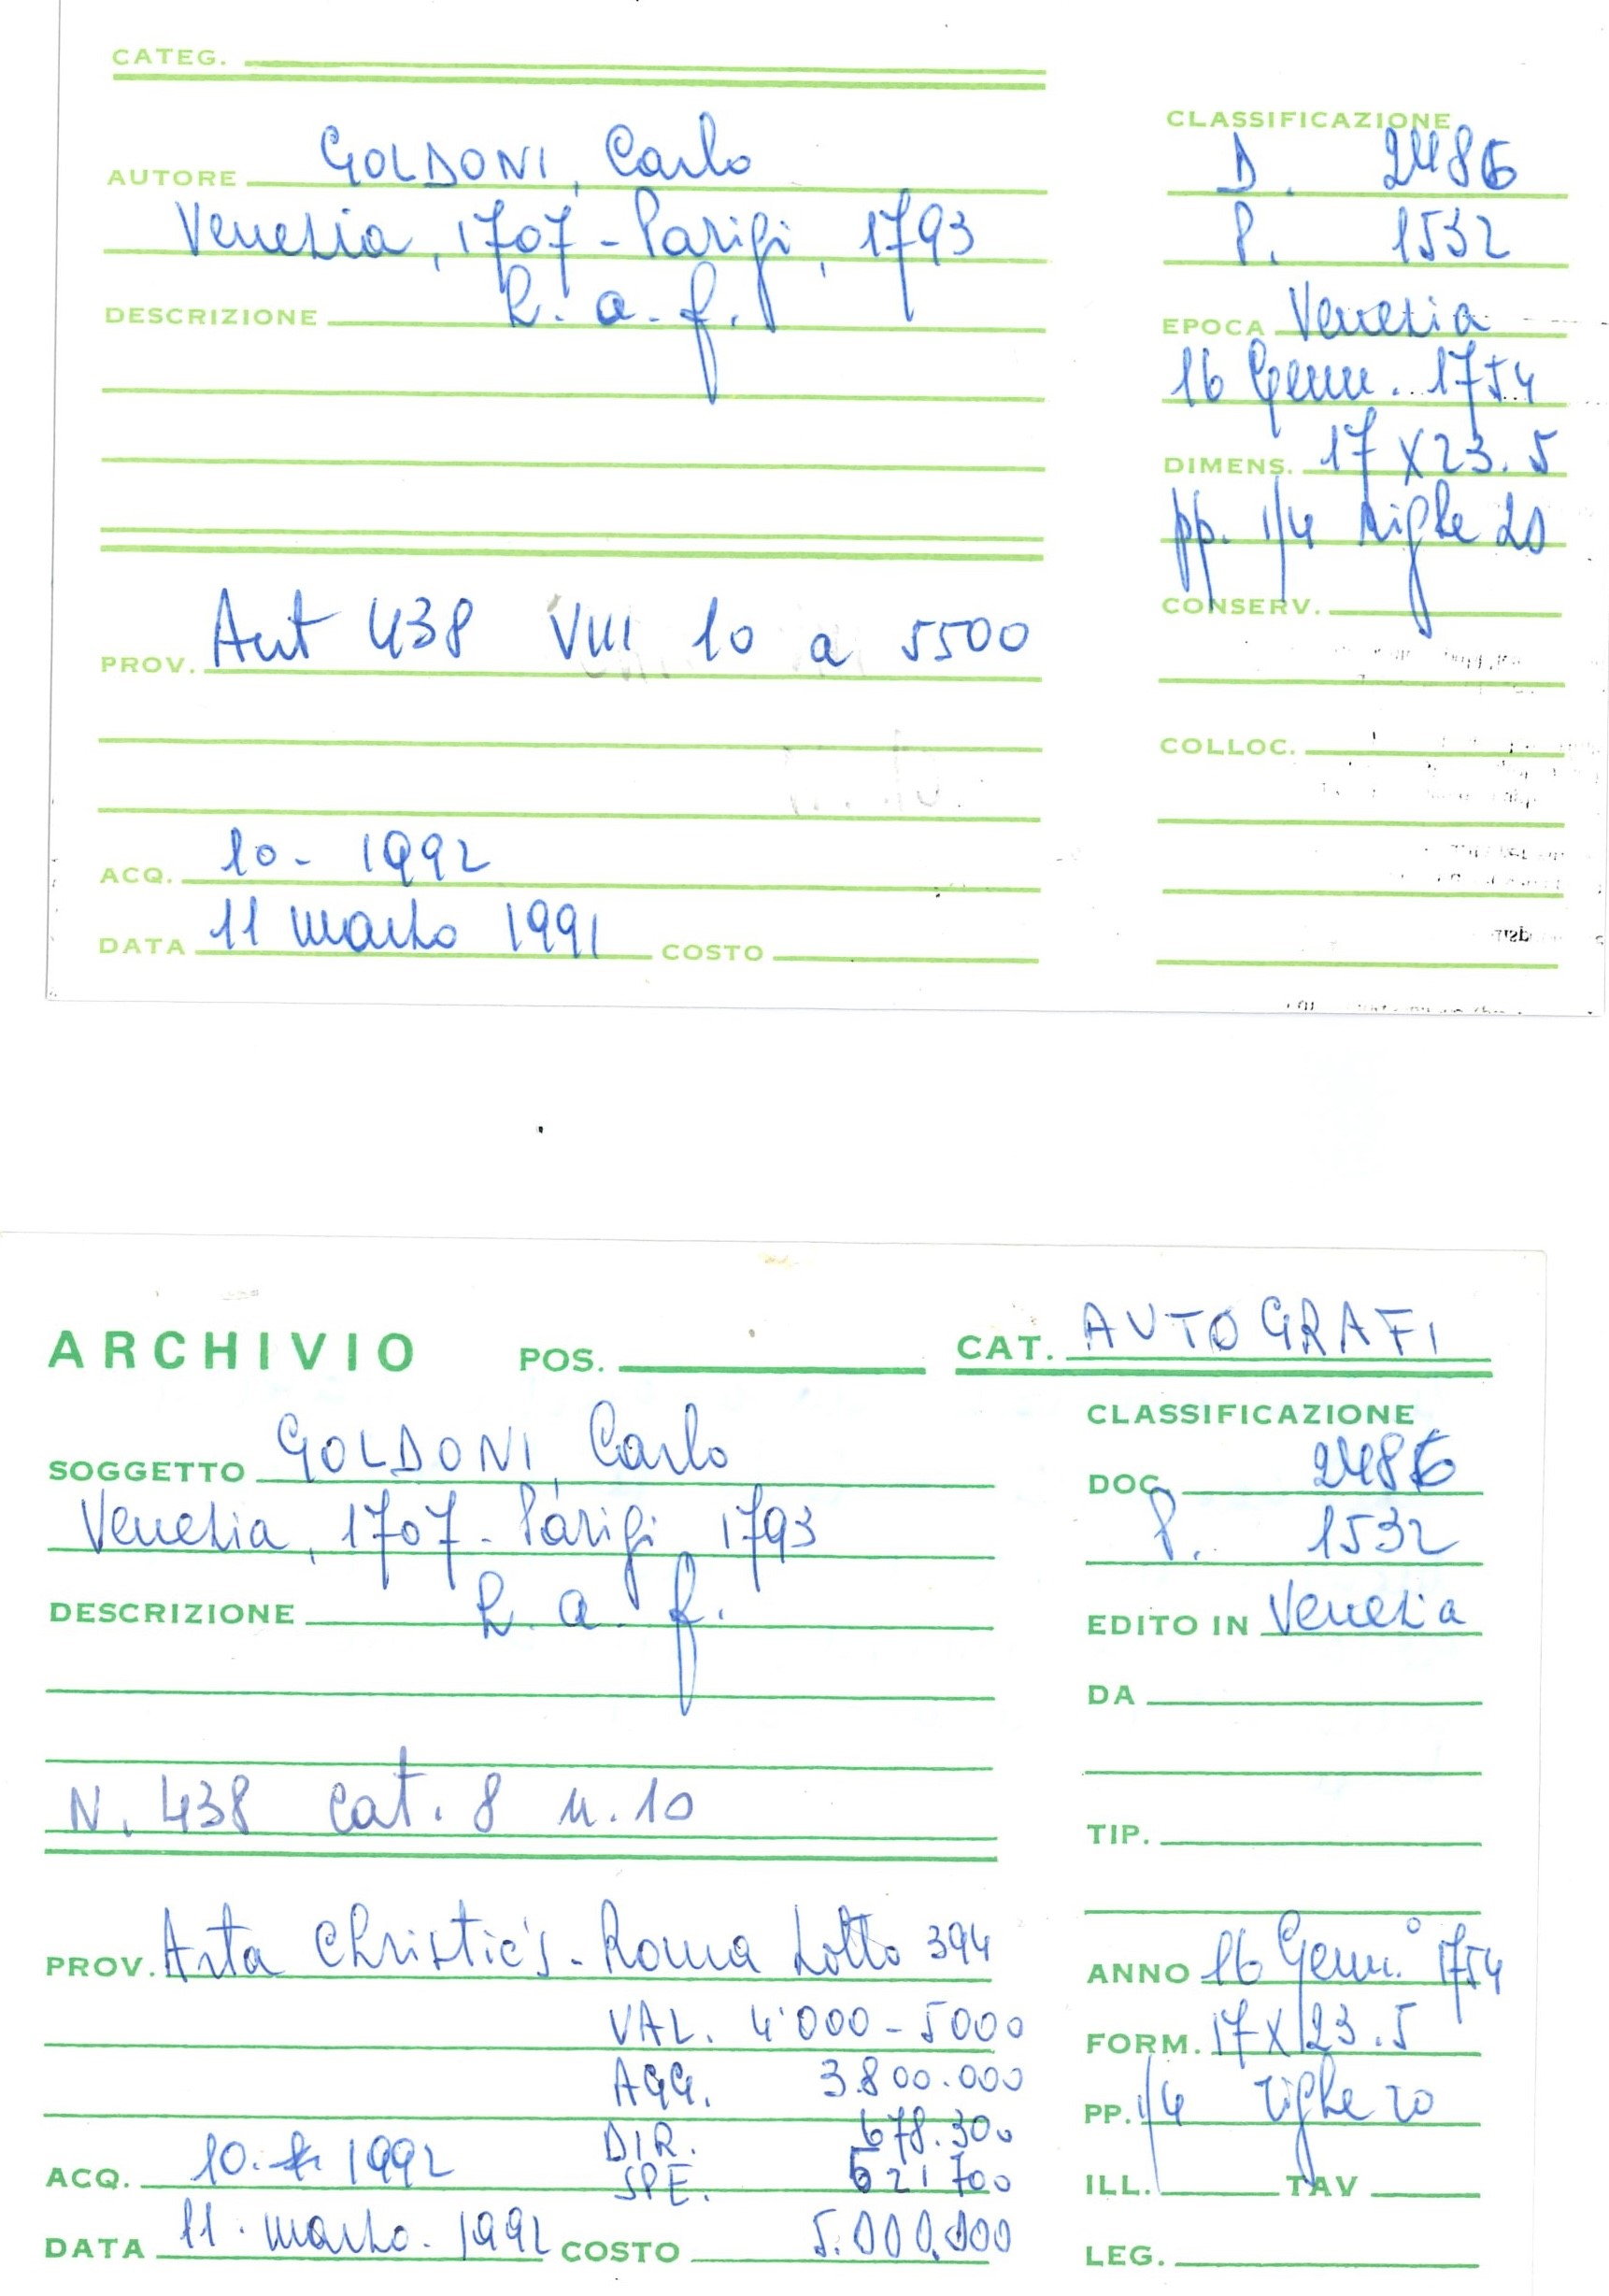 CATEG.
AUTORE GOLDONI, Carlo
Venezia, 1707 - Parigi, 1793
DESCRIZIONE L. a. f.
PROV. Aut 438 VIII 10 a 5500
ACQ. 10 - 1992
DATA 11 marzo 1991 COSTO
CLASSIFICAZIONE
D. 2486
P. 1532
EPOCA Venezia
16 Genn. 1754
DIMENS. 17 X 23.5
pp. 1/4 righe 20
CONSERV.
COLLOC.
ARCHIVIO POS. CAT. AUTOGRAFI
SOGGETTO GOLDONI, Carlo
Venezia, 1707 - Parigi 1793
DESCRIZIONE L. a. f.
N. 438 cat. 8 n. 10
PROV. Asta Christie's - Roma Lotto 394
VAL. 4'000 - 5000
AGG. 3.800.000
DIR. 678.300
ACQ. 10. 1992 SPE. 521700
DATA 11. marzo. 1992 COSTO 5.000.000
CLASSIFICAZIONE
DOC. 2486
P. 1532
EDITO IN Venezia
DA
TIP.
ANNO 16 Genn.° 1754
FORM. 17 X 23.5
PP. 1/4 righe 20
ILL. TAV
LEG.